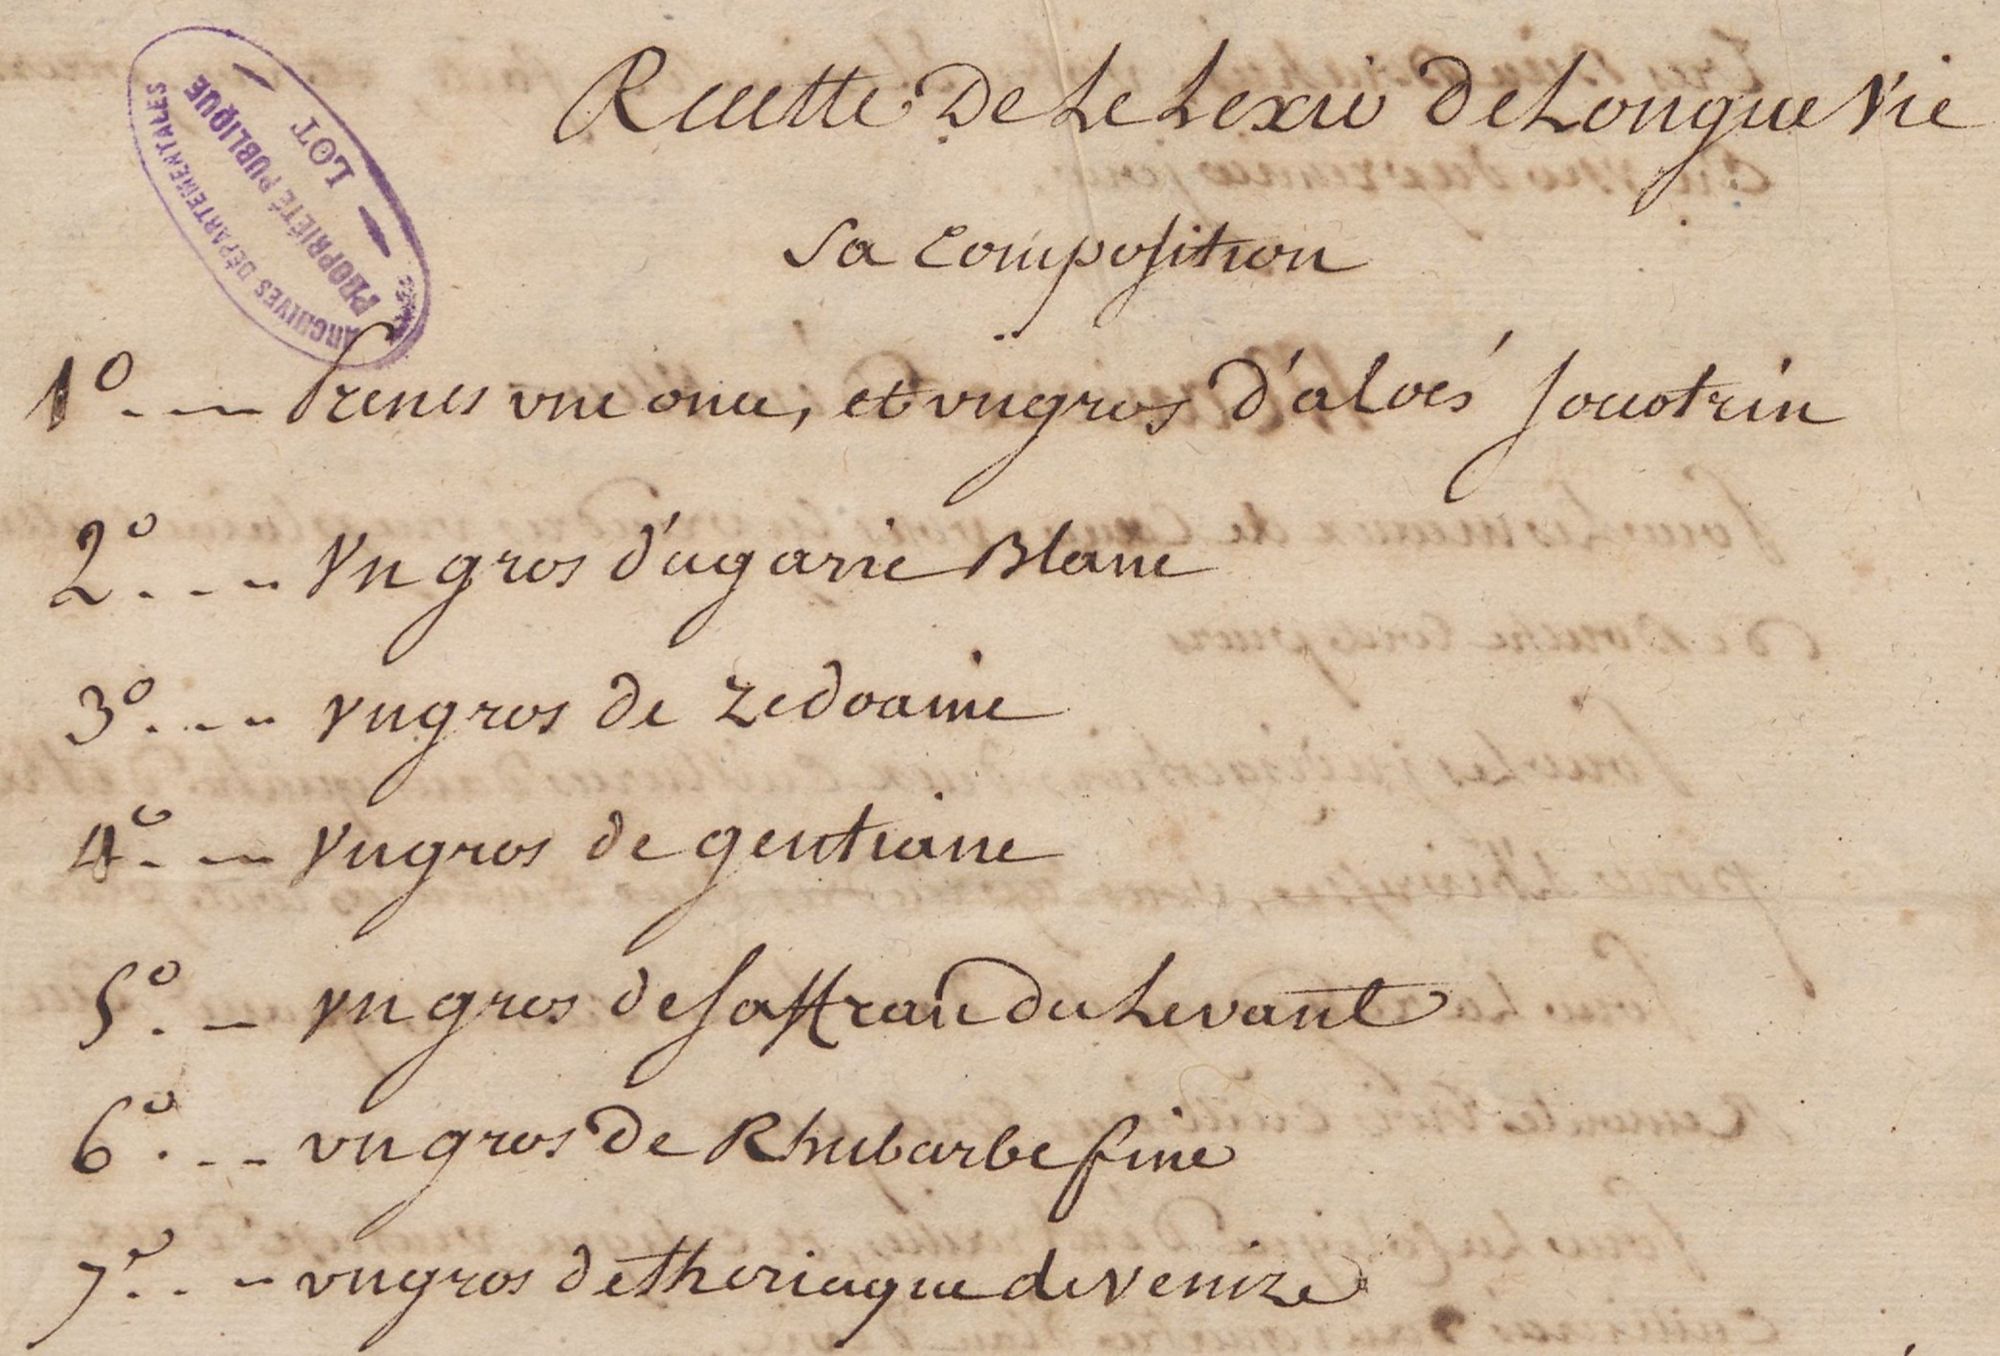 ARCHIVES DÉPARTEMENTALES
PROPRIÉTÉ PUBLIQUE
LOT
Recette De Le Lexir de Longue Vie
sa composition
1º. --- Prenes une once, et un gros d'aloés soucotrin
2º. --- Un gros d'agaric Blanc
3º. --- un gros de zedoaine
4º. --- Un gros de gentiane
5º. -- un gros de saffran du Levant
6º. --- un gros de Rhubarbe fine
7º. -- un gros de theriaque de venize